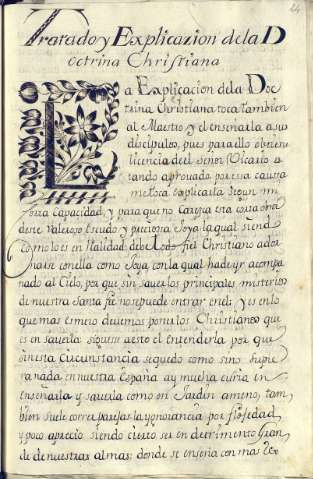 24
Tratado y Explicazion de la D
octrina Christiana
La Explicacion de la Doc
trina Christiana toca tambien
al Maestro y el enseñarla a sus
discipulos, pues para ello obtiene
licencia del Señor Vicario es
tando aprovado por essa causa
me toca explicarla segun mi
corta capacidad, y para que no Carezca esta corta obra
de este Valeroso Escudo y preciosa Joya la qual siend
o como lo es en Realidad debe todo fiel Christiano ador
narse con ella como Joya con la qual ha de yr acompa
ñado al Cielo, por que sin saver los principales misterios
de nuestra Santa fee no se puede entrar en el: y es en lo
que mas esmero devemos poner los Christianos que
es en saverla siguese a esto el entenderla por que
sin esta Circunstancia se quedo como sino supie
ra nada en nuestra España ay mucha curia en
enseñarla y saverla como en Jardin ameno, tam
bien suele correr parejas la ygnorancia por flogedad
y poco aprecio siendo cierto ser en detrimento gran
de de nuestras almas: donde se enseña con mas